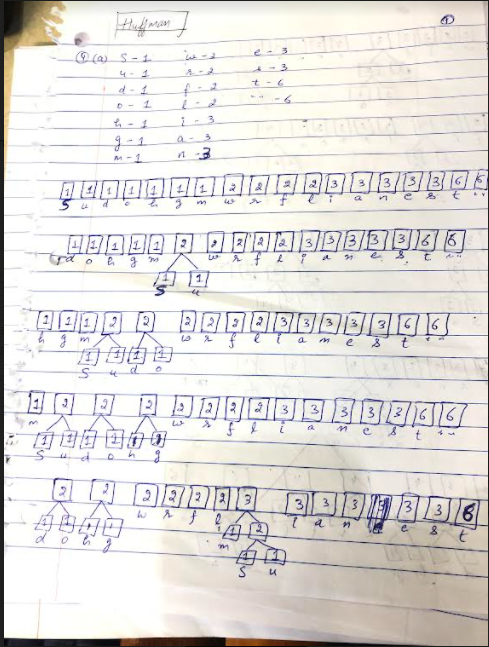 Huffman
①
Q (a) S - 1 w - 2 e - 3
u - 1 r - 2 s - 3
d - 1 f - 2 t - 6
o - 1 l - 2 " " - 6
h - 1 i - 3
g - 1 a - 3
m - 1 n - 3
1 1 1 1 1 1 1 2 2 2 2 3 3 3 3 3 6 6
S u d o h g m w r f l i a n e s t " "
1 1 1 1 1 2 2 2 2 2 3 3 3 3 3 6 6
d o h g m w r f l i a n e s t " "
1 1
S u
1 1 1 2 2 2 2 2 2 3 3 3 3 3 6 6
h g m w r f l i a n e s t " "
1 1 1 1
S u d o
1 2 2 2 2 2 2 2 3 3 3 3 3 6 6
m w r f l i a n e s t " "
1 1 1 1 1 1
S u d o h g
2 2 2 2 2 2 3 3 3 3 3 3 6
w r f l i a n e s t
1 1 1 1 1 2
d o h g m
1 1
S u